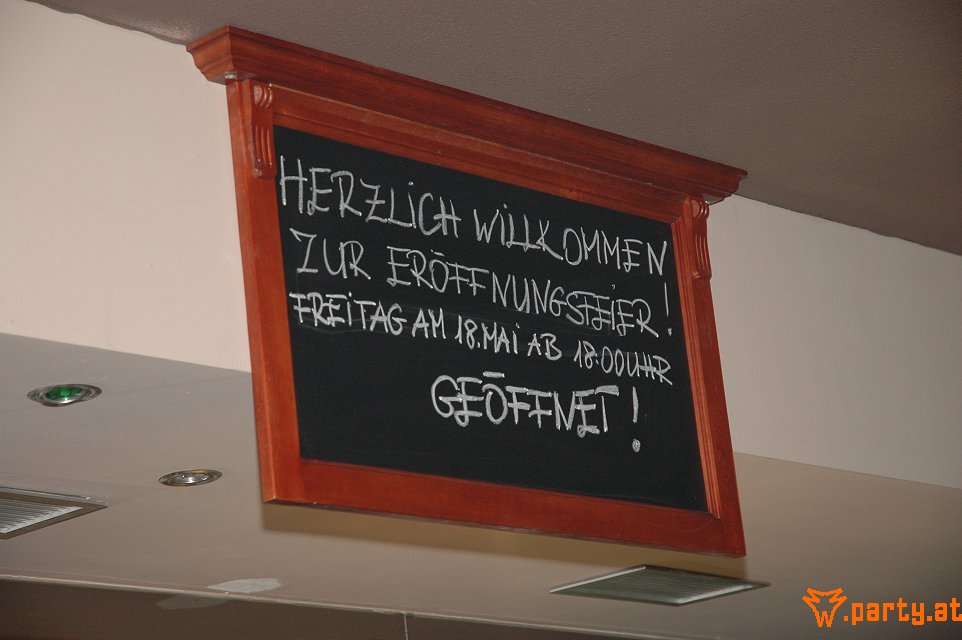 HERZLICH WILLKOMMEN
ZUR ERÖFFNUNGSFEIER!
FREITAG AM 18.MAI AB 18:00UHR
GEÖFFNET!
W.party.at